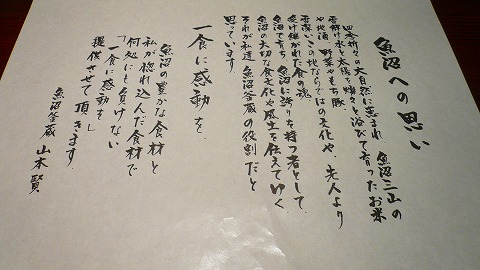 魚沼への思い
四季折々の大自然に恵まれ 魚沼三山の
雪解け水と太陽を燦々と浴びて育ったお米
や地酒、野菜やもち豚
雪深いこの地ならではの文化や、先人より
受け継がれた食の魂
魚沼で育ち、魚沼に誇りを持つ者として、
魚沼の大切な食文化や風土を伝えてゆく
それが私達 魚沼釜蔵の役割だと
思っています
一食に感動を
魚沼の豊かな食材と
私が惚れ込んだ食材で
何処にも負けない
「一食に感動を」
提供させて頂きます
魚沼釜蔵 山本 賢